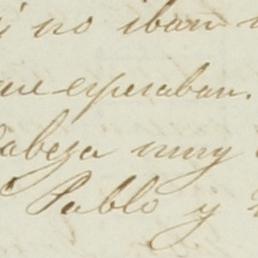 si no iban
que esperaban.
Cabeza muy
Pablo y